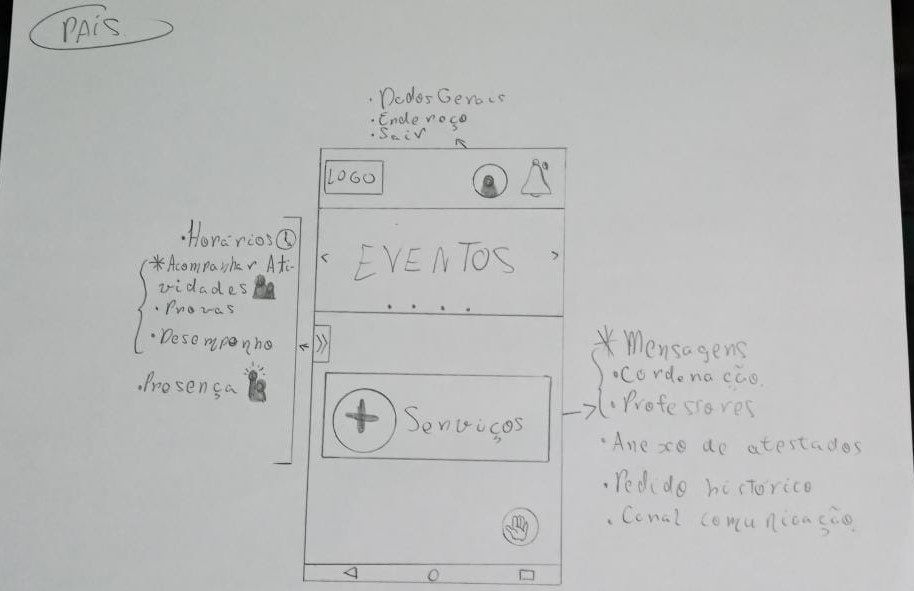 PAIS
• Dados Gerais
• Endereço
• Sair
LOGO
< EVENTOS >
• Horários
* Acompanhar Ati-
vidades
• Provas
• Desempenho
• Presença
>>
+ Serviços
* Mensagens
• Cordenação.
• Professores
• Anexo de atestados
• Pedido histórico
• Canal comunicação.